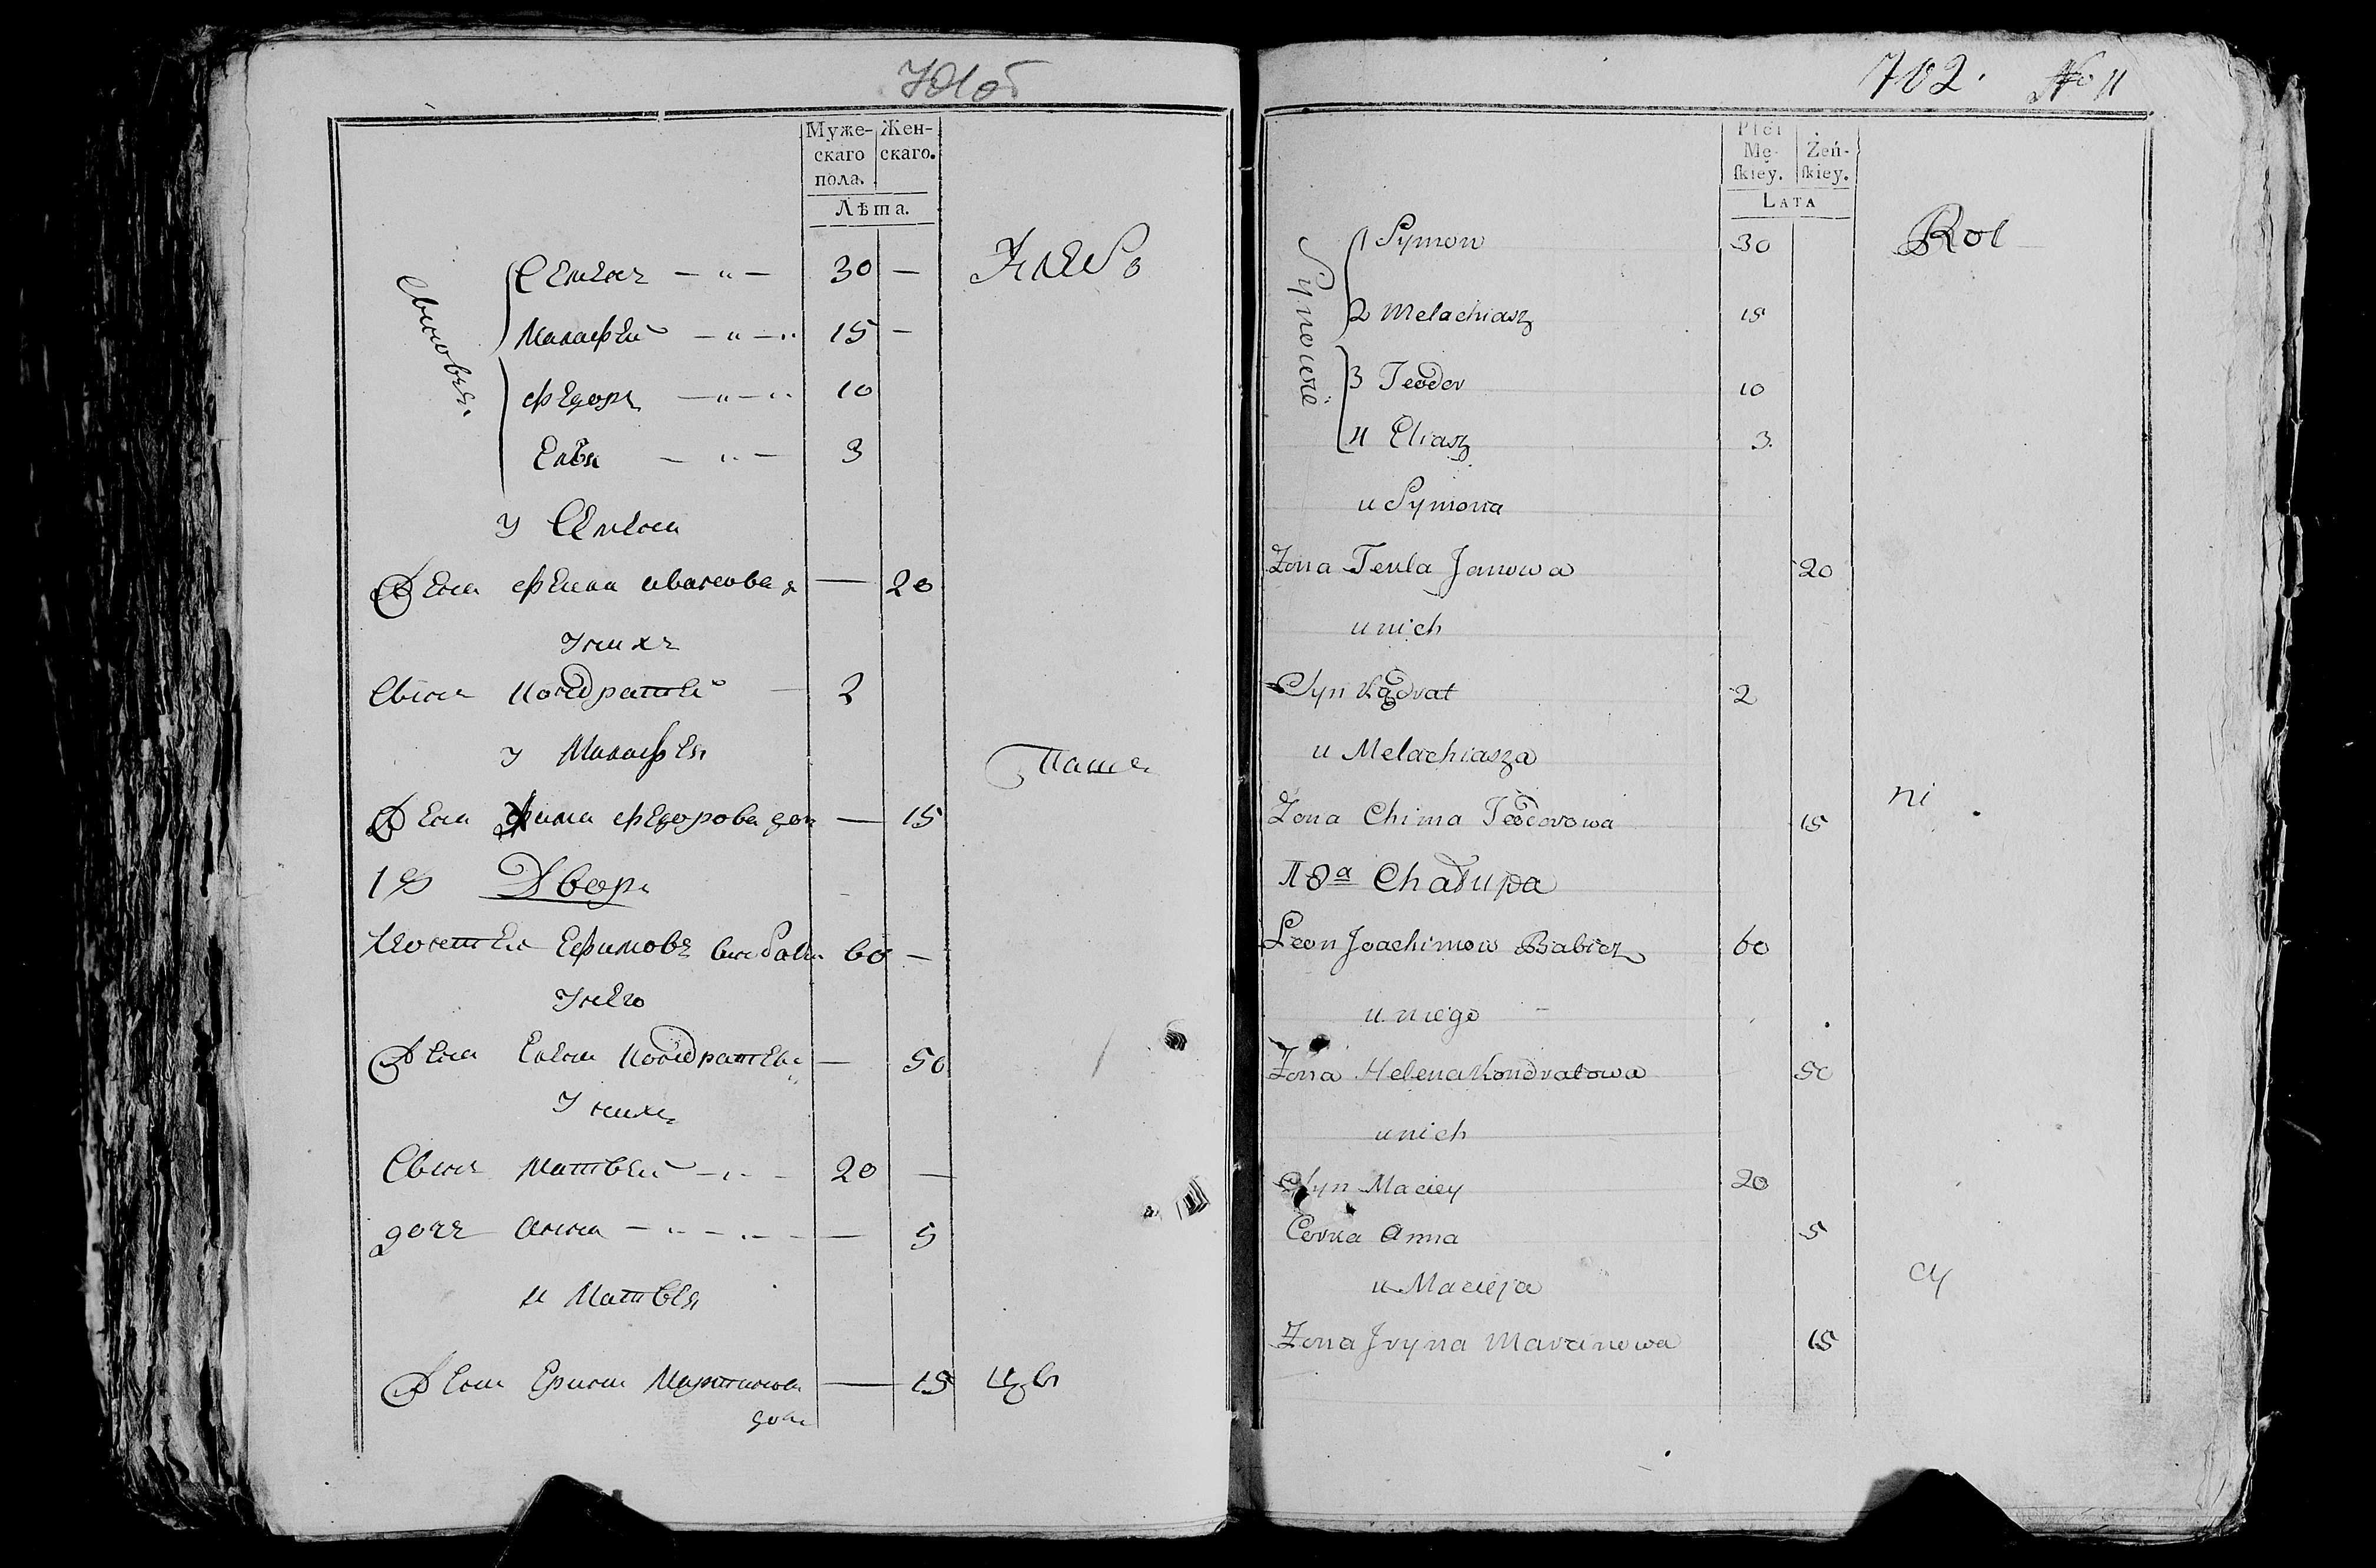 701 об
Муже- Жен-
скаго скаго.
пола.
Лѣта.
Сыновья
Семенъ — „ — 30 — Хлебо
Малафей — „ — „ 15 —
Федоръ — „ — „ 10
Елья — „ — 3
У Семена
Жена Фекла Иванова 20
У них
Сынъ Кондратей — 2
У Малафея
Паше
Жена Фима Федорова доч — 15
18 Дворъ
Леонтей Ефимовъ 60 —
У него
Жена Елена Кондратьев — 50
У нихъ
Сынъ Матвей — „ — 20 —
дочъ Анна — „ — „ — — 5
У Матвея
Жена Ерина Мартинова — 15 цы
доч
702. No 11
Płci
Mę- Żeń-
ſkiey. ſkiey.
LATA
Synowie
1 Symon 30 Rol
2 Melachiasz 15
3 Teodor 10
4 Eliasz 3.
u Symona
Żona Tekla Janowa 20
u nich
Syn Kądrat 2
u Melachiasza
ni
Żona Chima Teodorowa 15
18a Chałupa
Leon Joachimow Babicz 60
u niego
Żona Helena Kondratowa 50
u nich
Syn Maciey 20
Corka Anna 5
u Macieja cy
Żona Iryna Marcinowa 15